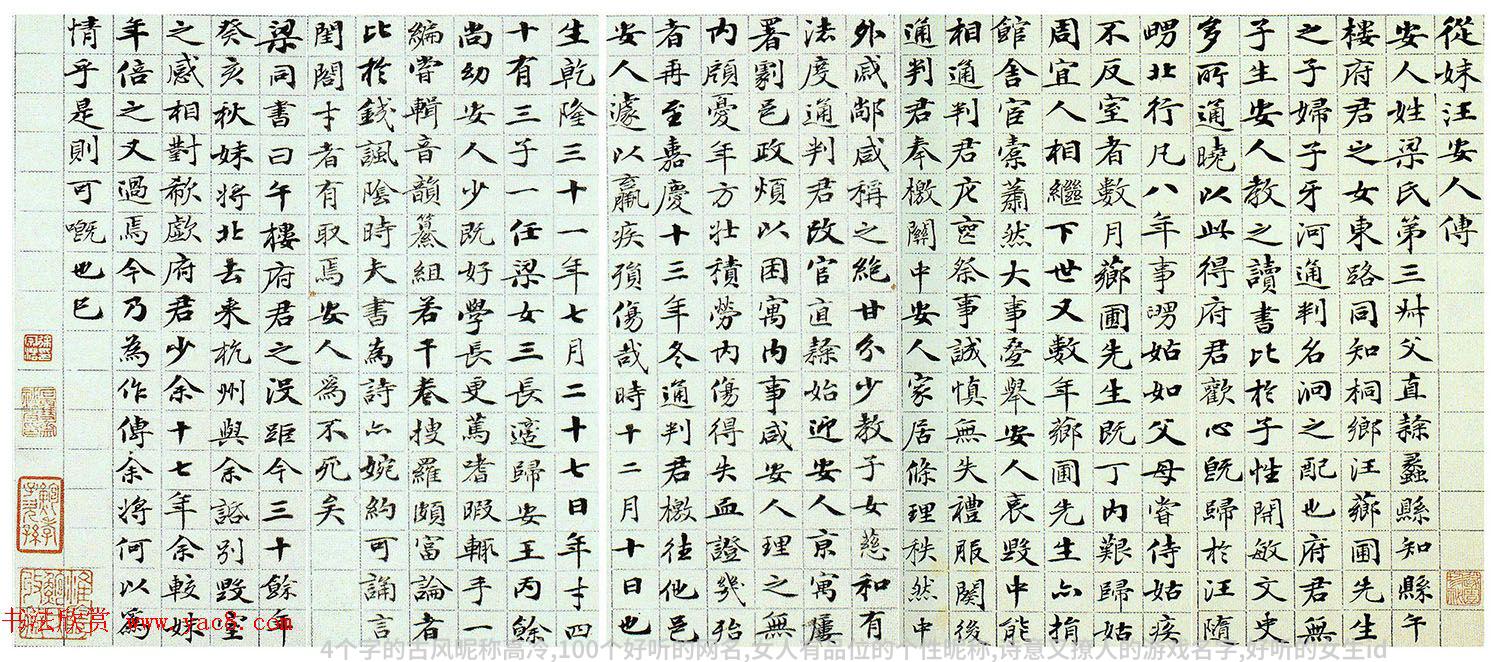 從妹汪安人傳
安人姓梁氏第三艸父直隸蠡縣知縣午
樓府君之女東路同知桐鄉汪薌圃先生
之子婦子牙河通判名泂之配也府君無
子生安人教之讀書比於子性開敏文史
多所通曉以此得府君歡心既歸於汪隨
北行凡八年事姑如父母嘗侍姑疾
不反室者數月薌圃先生既丁内艱歸姑
周宜人相繼下世又數年薌圃先生亦捐
館舍官橐蕭然大事疊舉安人哀毀中能
相通判君庀窀祭事誠慎無失禮服闋後
通判君奉檄關中安人家居條理秩然中
外戚鄰咸稱之絶甘分少教子女慈和有
法度通判君改官直隸始近安人京寓屢
署劇邑政煩以困寓内事咸安人理之無
内顧憂年方壯積勞内傷得失血證幾殆
者再至嘉慶十三年冬通判君檄往他邑
安人遽以羸疾殞傷哉時十二月十日也
生乾隆三十一年七月二十七日年才四
十有三子一任梁女三長適歸安王丙餘
尚幼安人少既好學長更篤嗜暇輒手一
編嘗輯音韻纂組若干卷搜羅頗富論者
比於錢諷陰時夫書為詩亦婉約可誦言
閨閤才者有取焉安人為不死矣
梁同書曰午樓府君之沒距今三十餘年
癸亥秋妹將北去來杭州與余別毀室
之感相對欷歔府君少余十七年余較妹
年倍之又過焉今乃為作傳余將何以為
情乎是則可嘅也已
书法欣赏 www.yac8.com
4个字的古风昵称高冷,100个好听的网名,女人有品位的个性昵称,诗意又撩人的游戏名字,好听的女主id